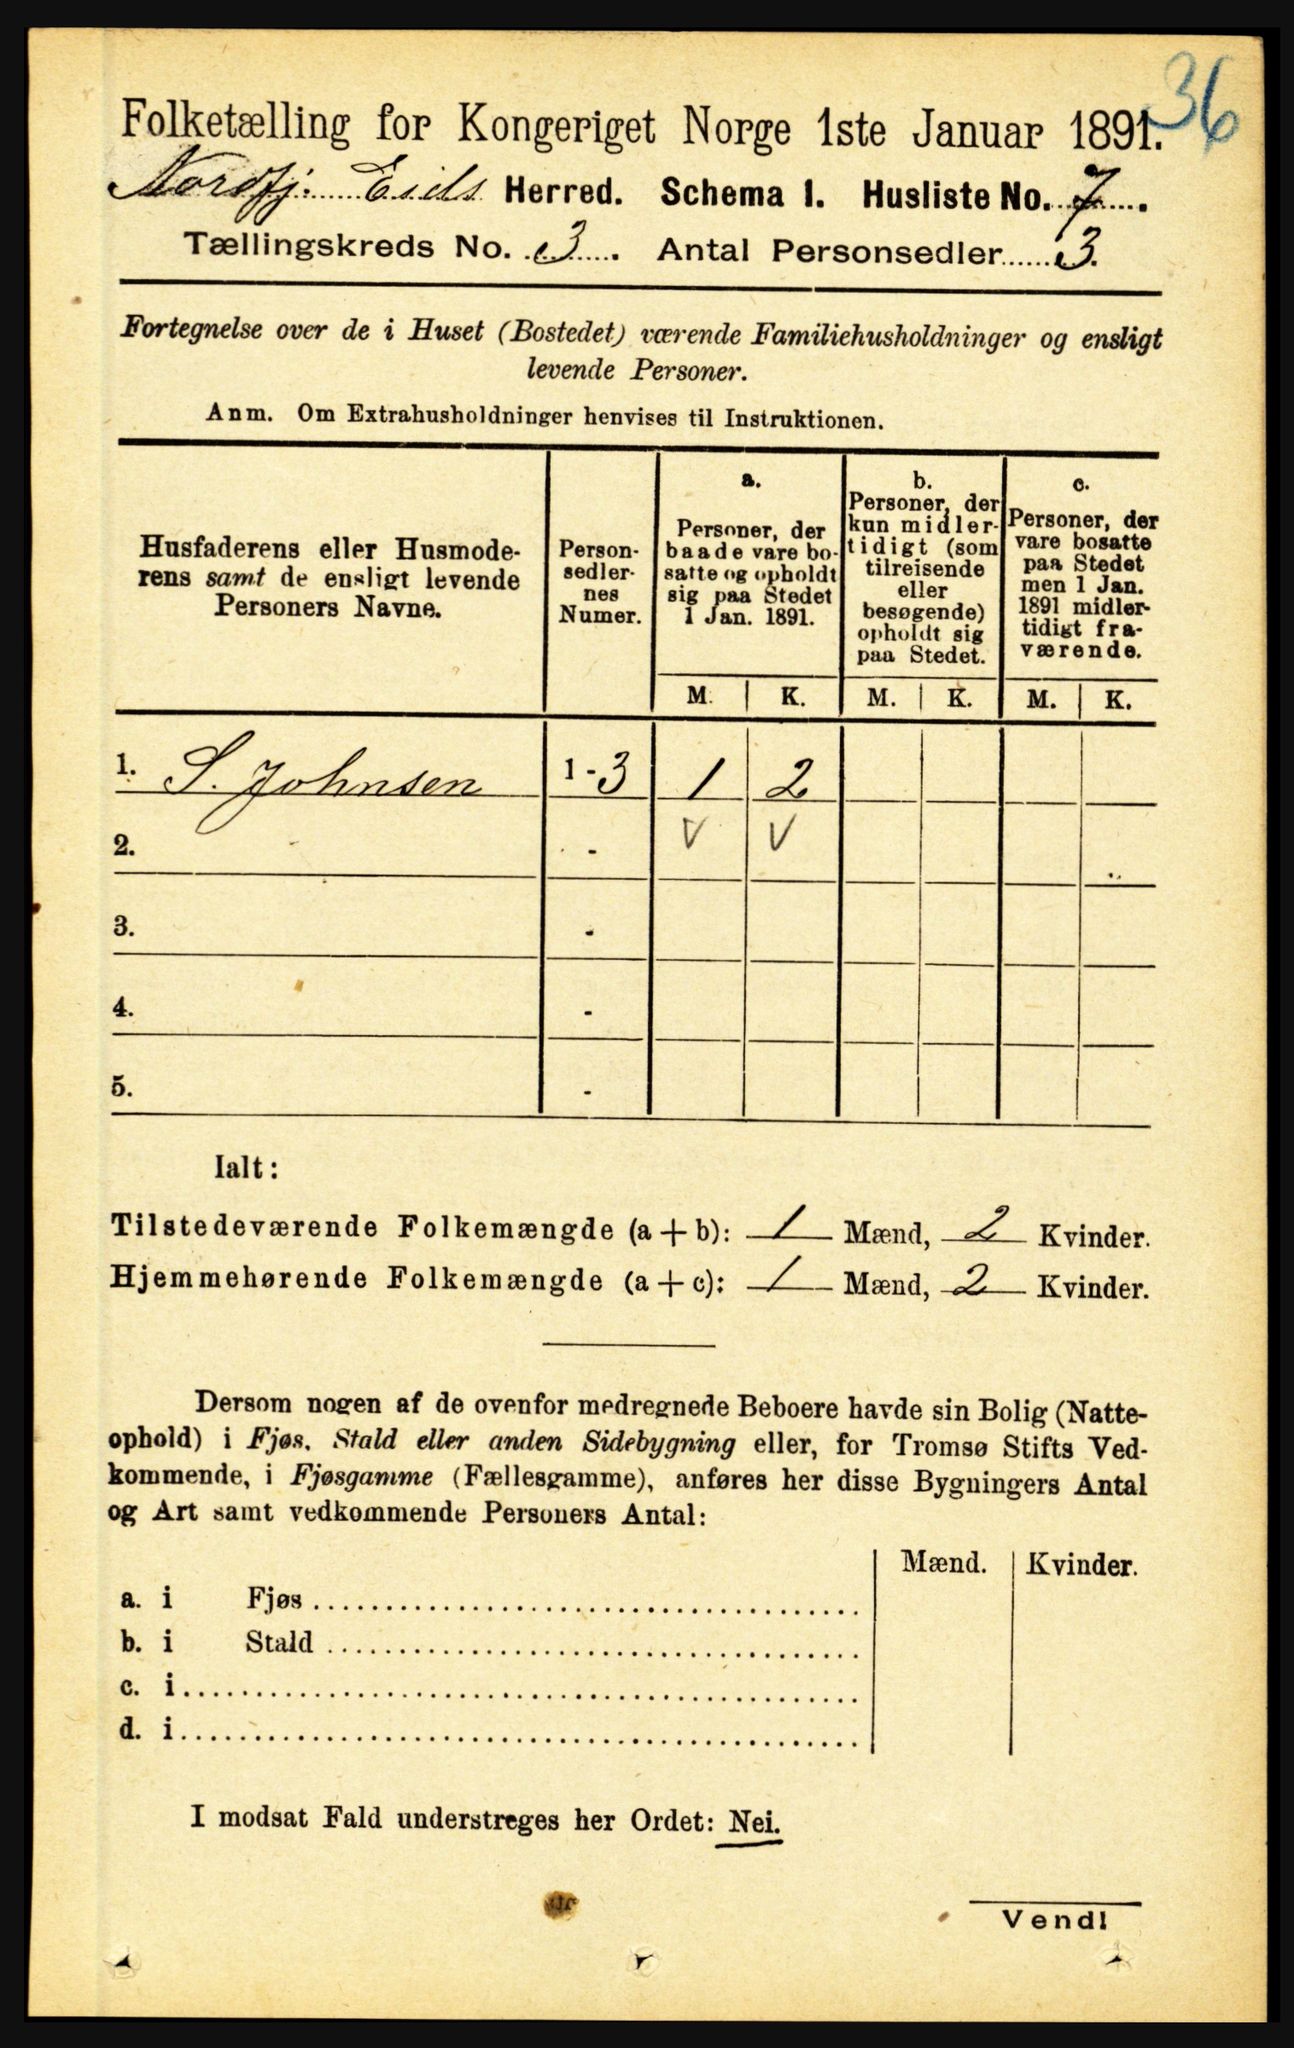 36
Folketælling for Kongeriget Norge 1ste Januar 1891.
Nordfj. Eids Herred. Schema I. Husliste No. 7.
Tællingskreds No. 3. Antal Personsedler 3.
Fortegnelse over de i Huset (Bostedet) værende Familiehusholdninger og ensligt
levende Personer.
Anm. Om Extrahusholdninger henvises til Instruktionen.
Husfaderens eller Husmode-
rens samt de ensligt levende
Personers Navne.
Person-
sedler-
nes
Numer.
a.
Personer, der
baade vare bo-
satte og opholdt
sig paa Stedet
1 Jan. 1891.
b.
Personer, der
kun midler-
tidigt (som
tilreisende
eller
besøgende)
opholdt sig
paa Stedet.
c.
Personer, der
vare bosatte
paa Stedet
men 1 Jan.
1891 midler-
tidigt fra-
værende.
M. K. M. K. M. K.
1. S. Johnsen 1-3 1 2
2. - V V
3. -
4. -
5. -
Ialt:
Tilstedeværende Folkemængde (a+b): 1 Mænd, 2 Kvinder.
Hjemmehørende Folkemængde (a+c): 1 Mænd, 2 Kvinder.
Dersom nogen af de ovenfor medregnede Beboere havde sin Bolig (Natte-
ophold) i Fjøs, Stald eller anden Sidebygning eller, for Tromsø Stifts Ved-
kommende, i Fjøsgamme (Fællesgamme), anføres her disse Bygningers Antal
og Art samt vedkommende Personers Antal:
Mænd. Kvinder.
a. i Fjøs
b. i Stald
c. i
d. i
I modsat Fald understreges her Ordet: Nei.
Vend!